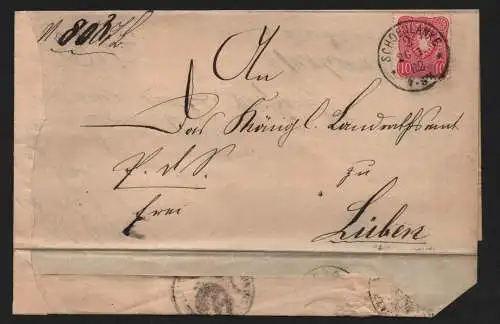 N 803
SCHOENLANKE
10 10
An
Das Königl. Landrathsamt
P. d. S. zu
frei Lüben